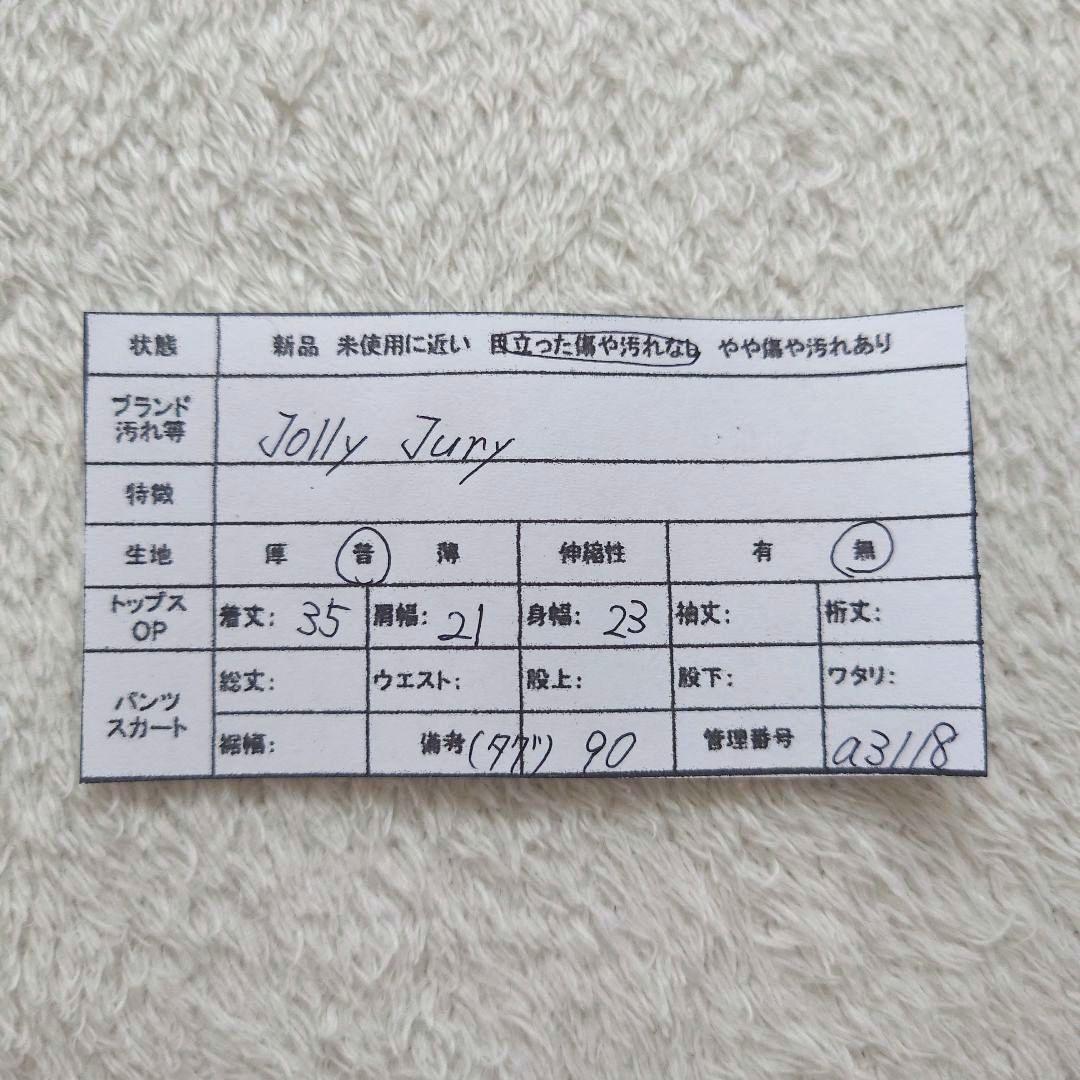 状態 新品 未使用に近い 目立った傷や汚れなし やや傷や汚れあり
ブランド
汚れ等
Jolly Jury
特徴
生地 厚 普 薄 伸縮性 有 無
トップス
OP
着丈: 35 肩幅: 21 身幅: 23 袖丈: 裄丈:
パンツ
スカート
総丈: ウエスト: 股上: 股下: ワタリ:
裾幅: 備考 (タグ) 90 管理番号 a3118